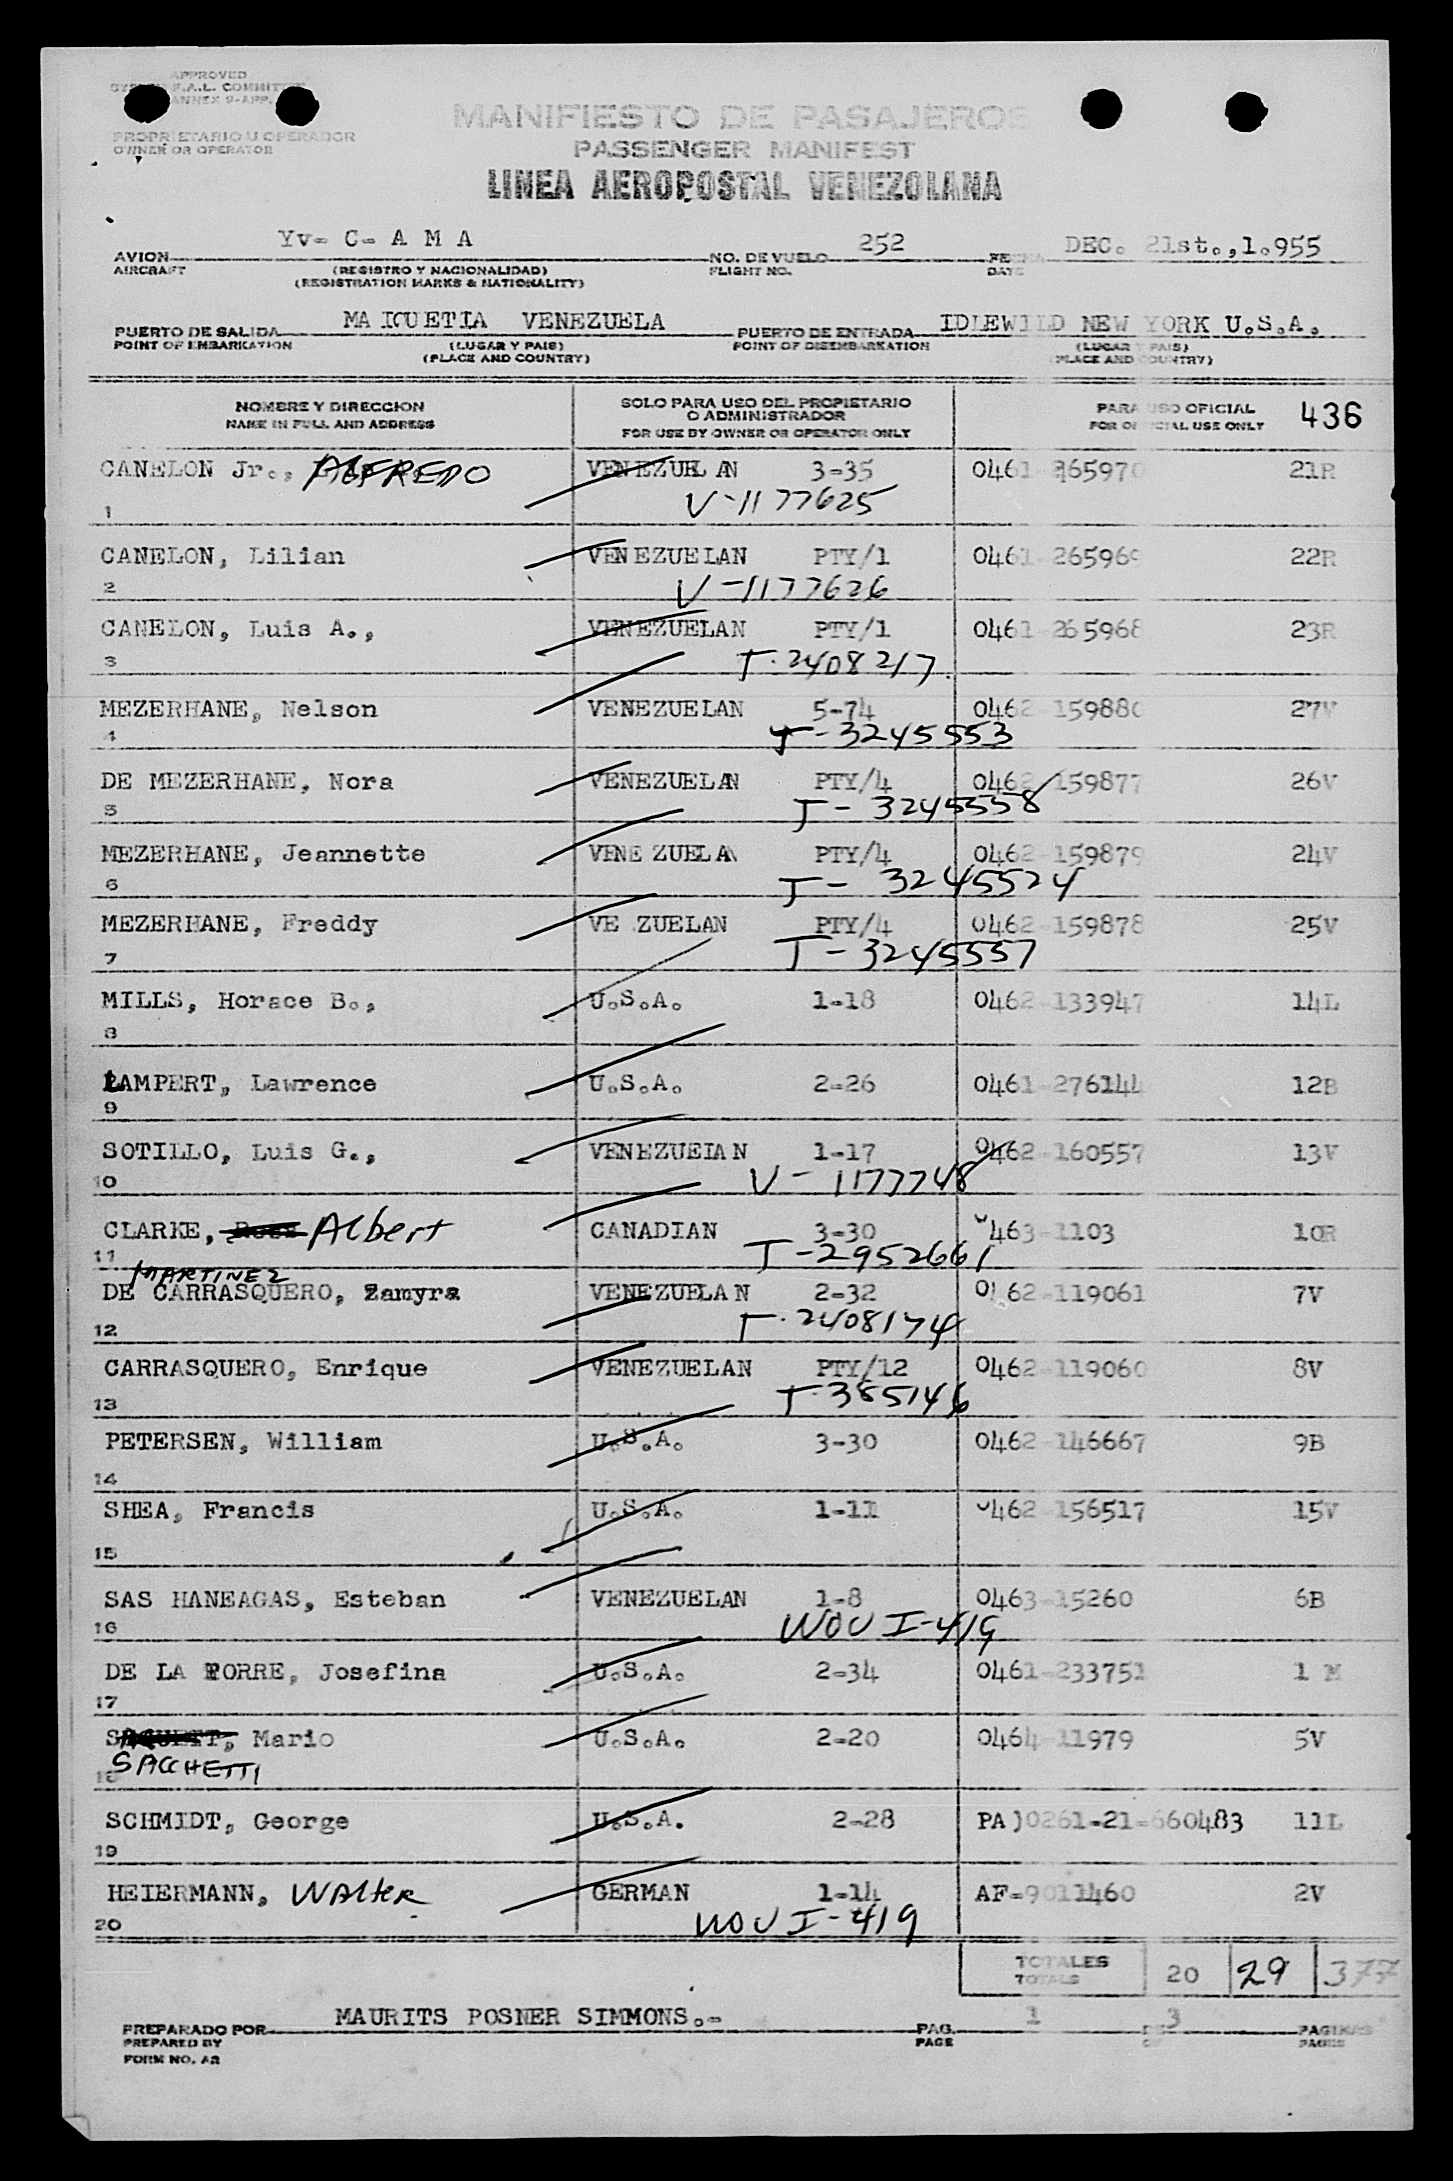 APPROVED
F.A.L. COMMITTEE
ANNEX 9-APP.
PROPRIETARIO U OPERADOR
OWNER OR OPERATOR
MANIFIESTO DE PASAJEROS
PASSENGER MANIFEST
LINEA AEROPOSTAL VENEZOLANA
AVION Yv- C- A M A NO. DE VUELO 252 FECHA DEC. 21st.,1.955
AIRCRAFT (REGISTRO Y NACIONALIDAD) FLIGHT NO. DATE
(REGISTRATION MARKS & NATIONALITY)
PUERTO DE SALIDA MAICUETIA VENEZUELA PUERTO DE ENTRADA IDLEWILD NEW YORK U.S.A.
POINT OF EMBARKATION (LUGAR Y PAIS) POINT OF DISEMBARKATION (LUGAR Y PAIS)
(PLACE AND COUNTRY) (PLACE AND COUNTRY)
NOMBRE Y DIRECCION SOLO PARA USO DEL PROPIETARIO PARA USO OFICIAL 436
NAME IN FULL AND ADDRESS O ADMINISTRADOR FOR OFFICIAL USE ONLY
FOR USE BY OWNER OR OPERATOR ONLY
CANELON Jr., ALFREDO VENEZUELAN 3-35 0461-265970 21R
1 V-1177625
CANELON, Lilian VENEZUELAN PTY/1 0461-265969 22R
2 V-1177626
CANELON, Luis A., VENEZUELAN PTY/1 0461-265968 23R
3 T-2408217
MEZERHANE, Nelson VENEZUELAN 5-74 0462-159880 27V
4 T-3245553
DE MEZERHANE, Nora VENEZUELAN PTY/4 0462-159877 26V
5 T-3245558
MEZERHANE, Jeannette VENEZUELAN PTY/4 0462-159879 24V
6 T-3245524
MEZERHANE, Freddy VE ZUELAN PTY/4 0462-159878 25V
7 T-3245557
MILLS, Horace B., U.S.A. 1-18 0462-133947 14L
8
LAMPERT, Lawrence U.S.A. 2-26 0461-276144 12B
9
SOTILLO, Luis G., VENEZUELAN 1-17 0462-160557 13V
10 V-1177748
CLARKE, Albert CANADIAN 3-30 0463-1103 10R
11 T-2952661
MARTINEZ
DE CARRASQUERO, Zamyra VENEZUELAN 2-32 0462-119061 7V
12 T-2408174
CARRASQUERO, Enrique VENEZUELAN PTY/12 0462-119060 8V
13 T-385146
PETERSEN, William U.S.A. 3-30 0462-146667 9B
14
SHEA, Francis U.S.A. 1-11 0462-156517 15V
15
SAS HANEAGAS, Esteban VENEZUELAN 1-8 0463-15260 6B
16 WOU I-419
DE LA TORRE, Josefina U.S.A. 2-34 0461-233751 1 M
17
SAQUETT, Mario U.S.A. 2-20 0464-11979 5V
18 SACCHETTI
SCHMIDT, George U.S.A. 2-28 PA)0261-21-660483 11L
19
HEIERMANN, WALTER GERMAN 1-14 AF-9011460 2V
20 WOU I-419
TOTALES 20 29 377
TOTALS
PREPARADO POR MAURITS POSNER SIMMONS.- PAG. 1 DE 3 PAGINAS
PREPARED BY PAGE OF PAGES
FORM NO. A2